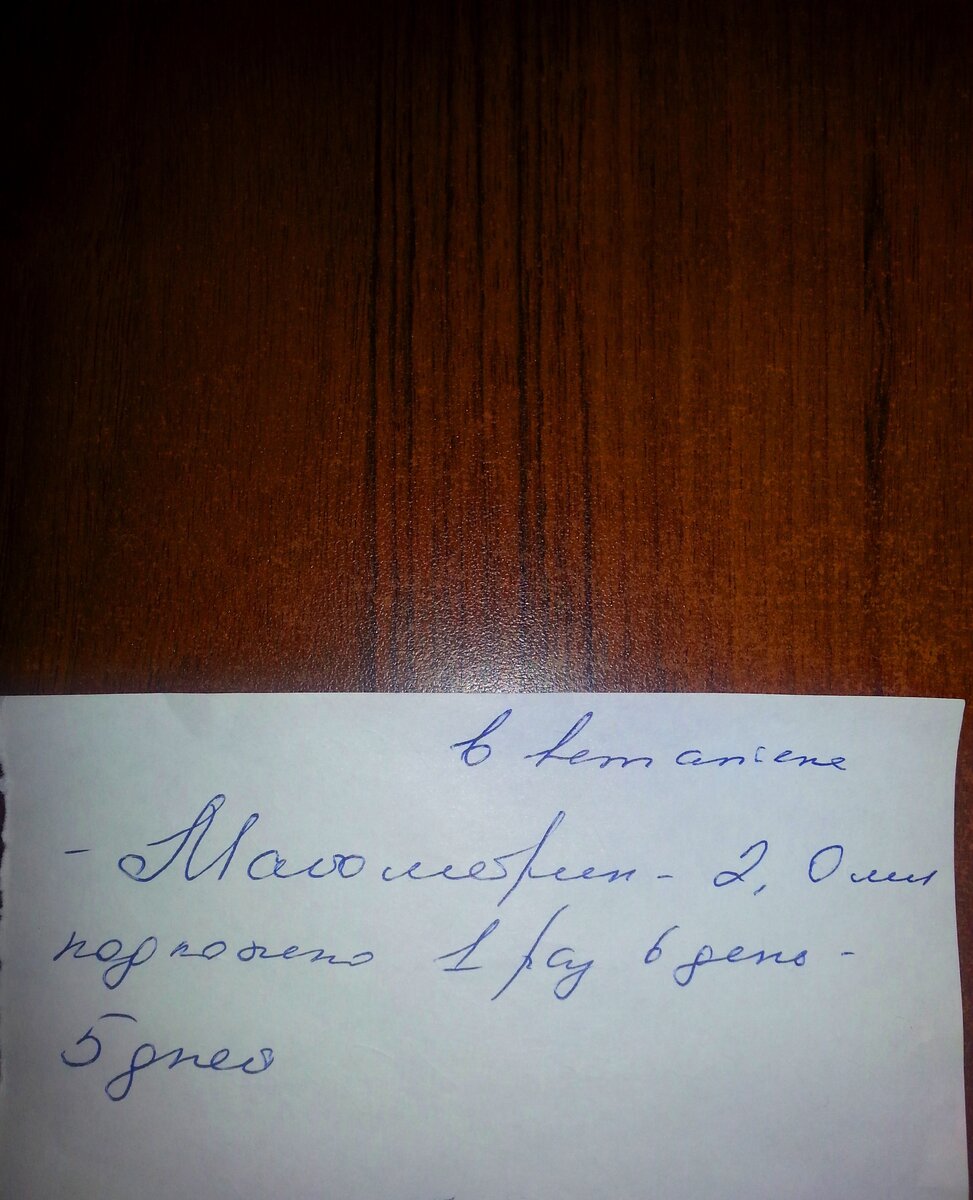 в ветаптеке
- Мастометрин - 2,0 мл
подкожно 1 раз в день -
5 дней